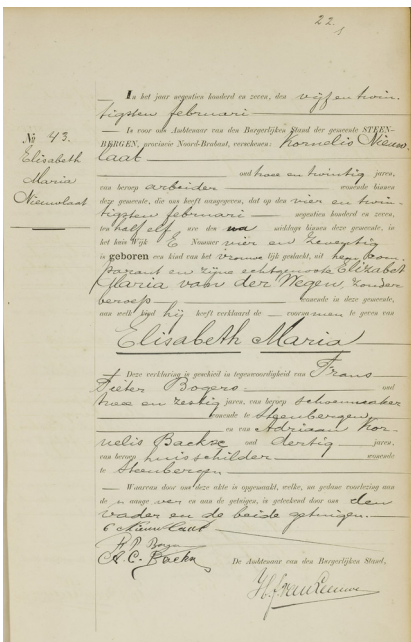 22
1
In het jaar negentien honderd en zeven, den vijf en twin-
tigsten februari
No 43.
Elisabeth
Maria
Nieuwlaat
Is voor ons Ambtenaar van den Burgerlijken Stand der gemeente STEEN-
BERGEN, provincie Noord-Brabant, verschenen: Kornelis Nieuw
laat
oud twee en twintig jaren,
van beroep arbeider wonende binnen
deze gemeente, die ons heeft aangegeven, dat op den vier en twin-
tigsten februari negentien honderd en zeven,
ten half elf ure des na middags binnen deze gemeente, in
het huis Wijk E Nommer vier en zeventig
is geboren een kind van het vrouwelijk geslacht, uit hem kom-
parant en zijne echtgenoote Elizabet
Maria van der Wegen, zonder
beroep wonende in deze gemeente,
aan welk kind hij heeft verklaard de voornamen te geven van
Elisabeth Maria
Deze verklaring is geschied in tegenwoordigheid van Frans
Pieter Bogers oud
twee en zestig jaren, van beroep schoenmaker
wonende te Steenbergen
en van Adriaan Kor-
nelis Backx oud dertig jaren,
van beroep huisschilder wonende
te Steenbergen
Waarvan door ons deze akte is opgemaakt, welke, na gedane voorlezing aan
de aange ver en aan de getuigen, is geteekend door ons den
vader en de beide getuigen.
C Nieuwlaat
F. P. Bogers
A. C. Backx
De Ambtenaar van den Burgerlijken Stand,